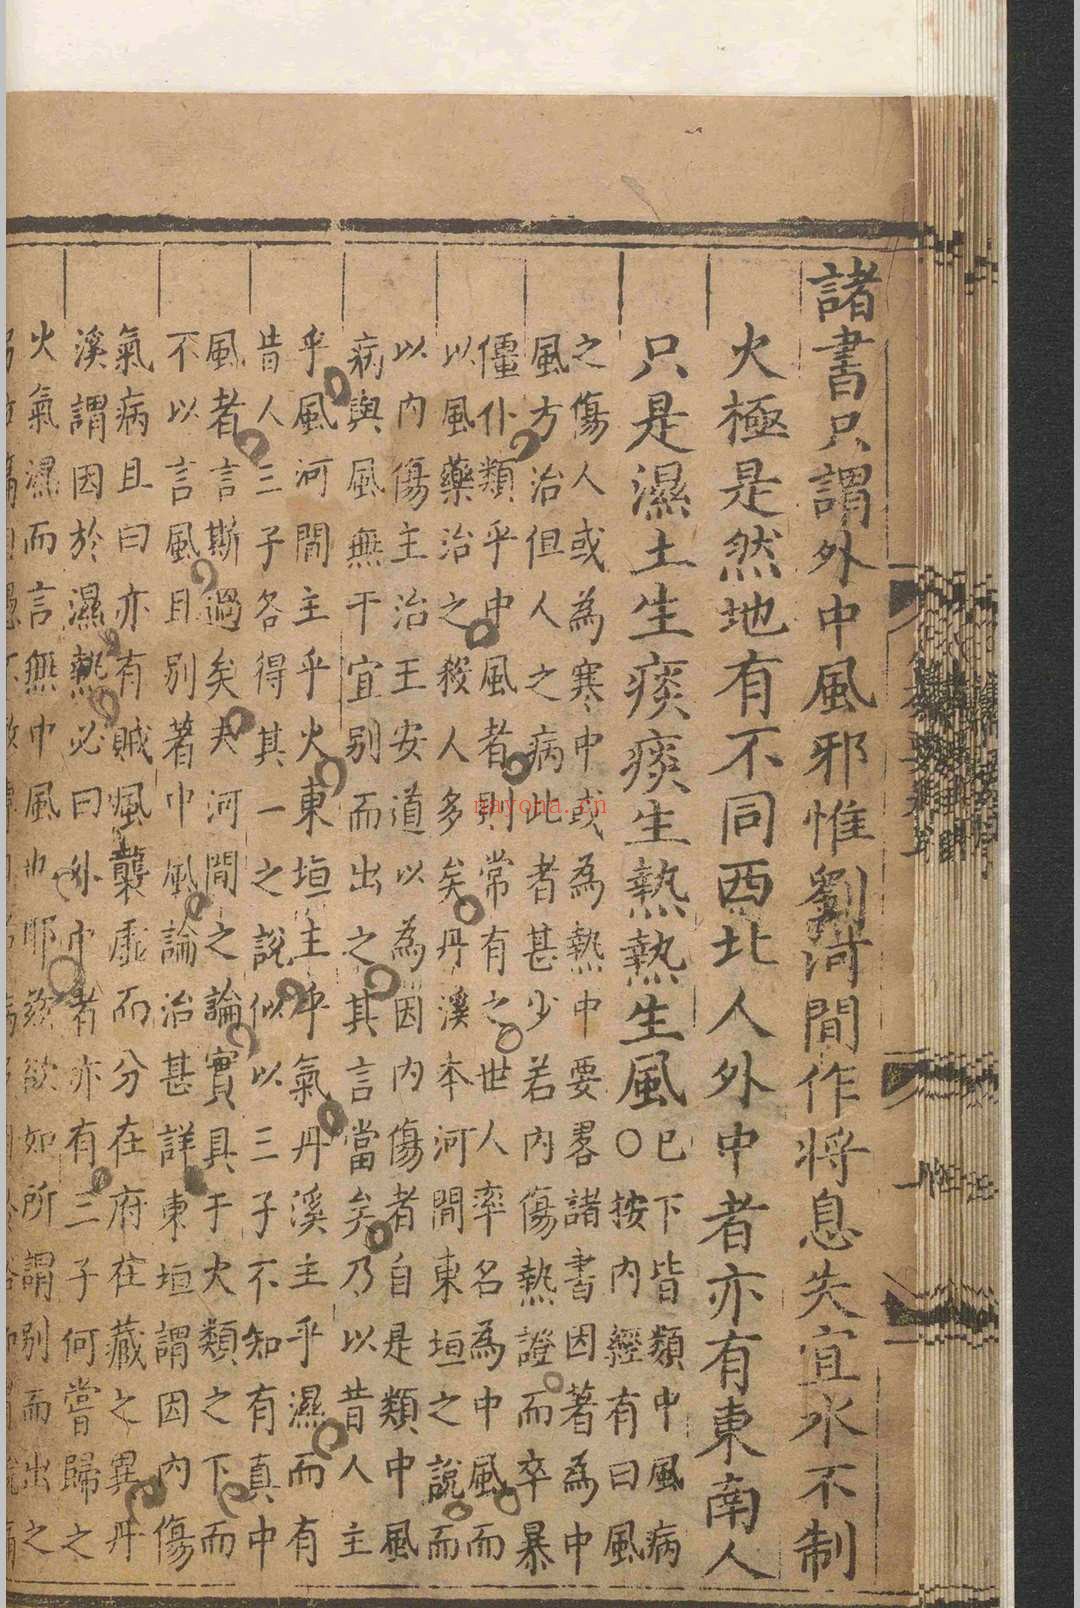 諸書只謂外中風邪惟劉河間作将息失宜水不制
火極是然地有不同西北人外中者亦有東南人
只是濕土生痰痰生熱熱生風○
已下皆類中風病
按内經有曰風
之傷人或為寒中或為熱中要畧諸書因著為中
風方治但人之病此者甚少若内傷熱證而卒暴
僵仆類乎中風者則常有之世人率名為中風而
以風藥治之殺人多矣丹溪本河間東垣之說而
以内傷主治王安道以為因内傷者自是類中風
病與風無干宜别而出之其言當矣乃以昔人主
乎風河間主乎火東垣主乎氣丹溪主乎濕而有
昔人三子各得其一之說似以三子不知有真中
風者言斯過矣夫河間之論實具于火類之下而
不以言風且别著中風論治甚詳東垣謂因内傷
氣病且曰亦有賊風襲虛而分在府在藏之異丹
溪謂因於濕熱必曰外中者亦有三子何嘗歸之
火氣濕而言無中風也耶欲如所謂别而出之
nayona.cn